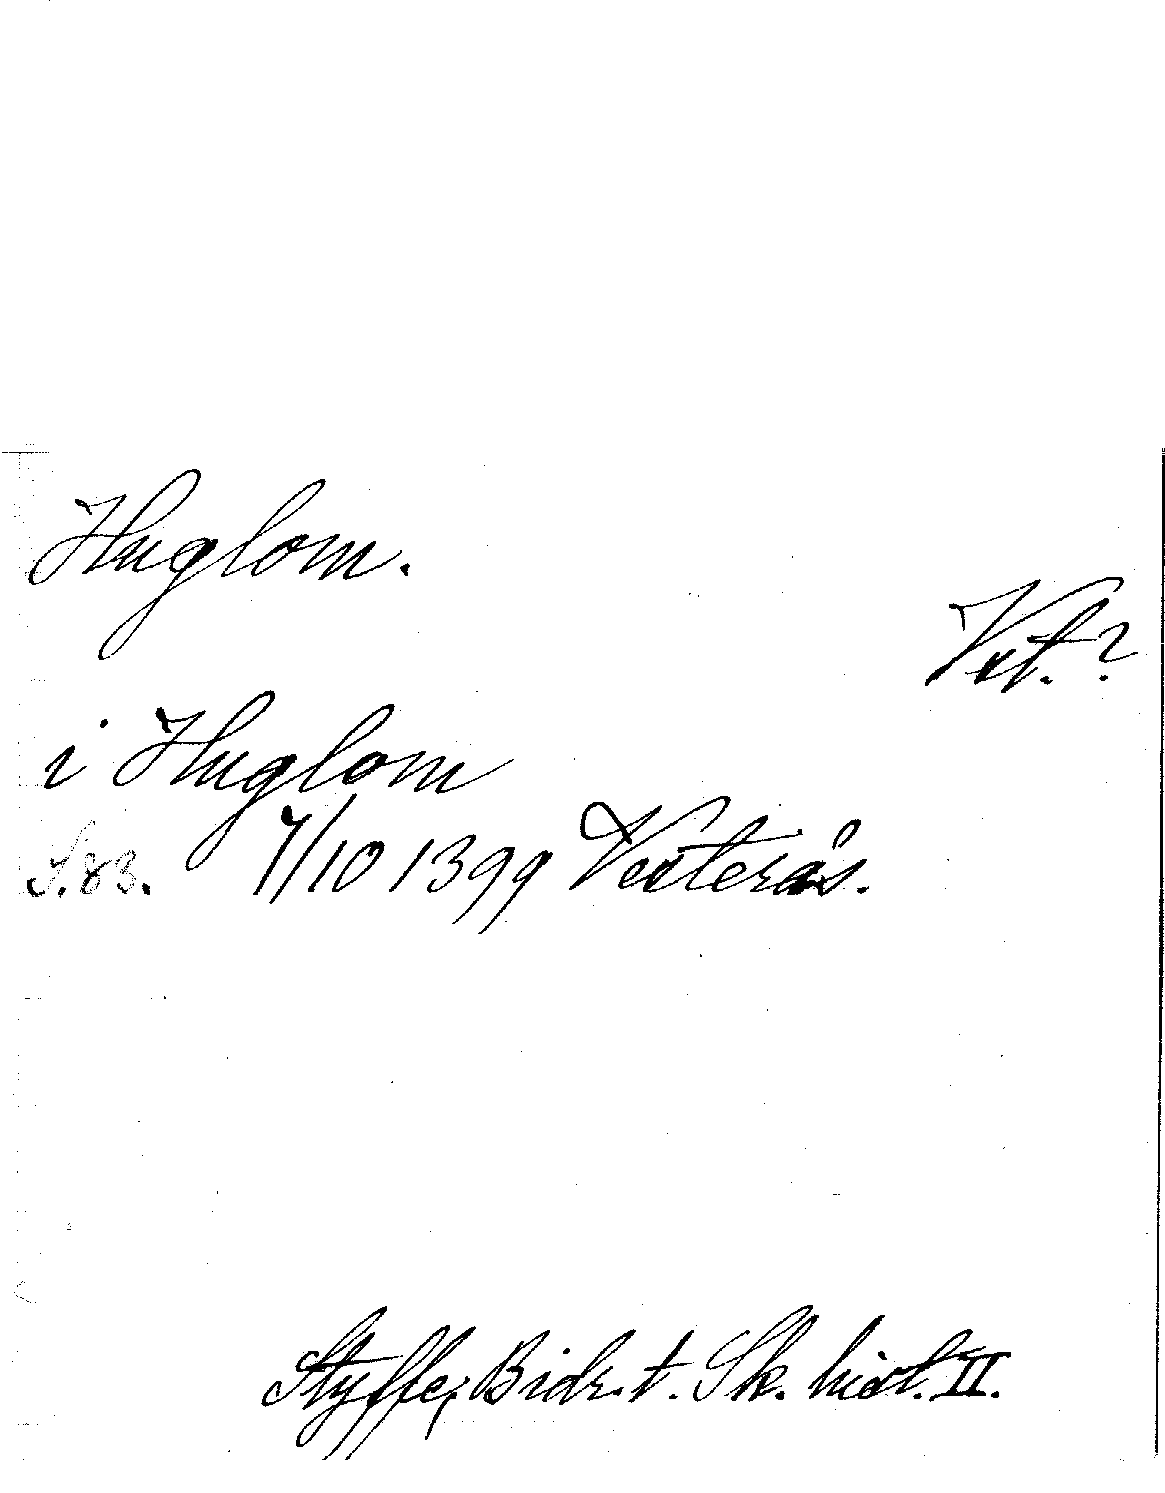 Huglom.
Vst.?
i Huglom
S. 83. 7/10 1399 Vesterås.
Styffe, Bidr. t. Sk. hist. II.